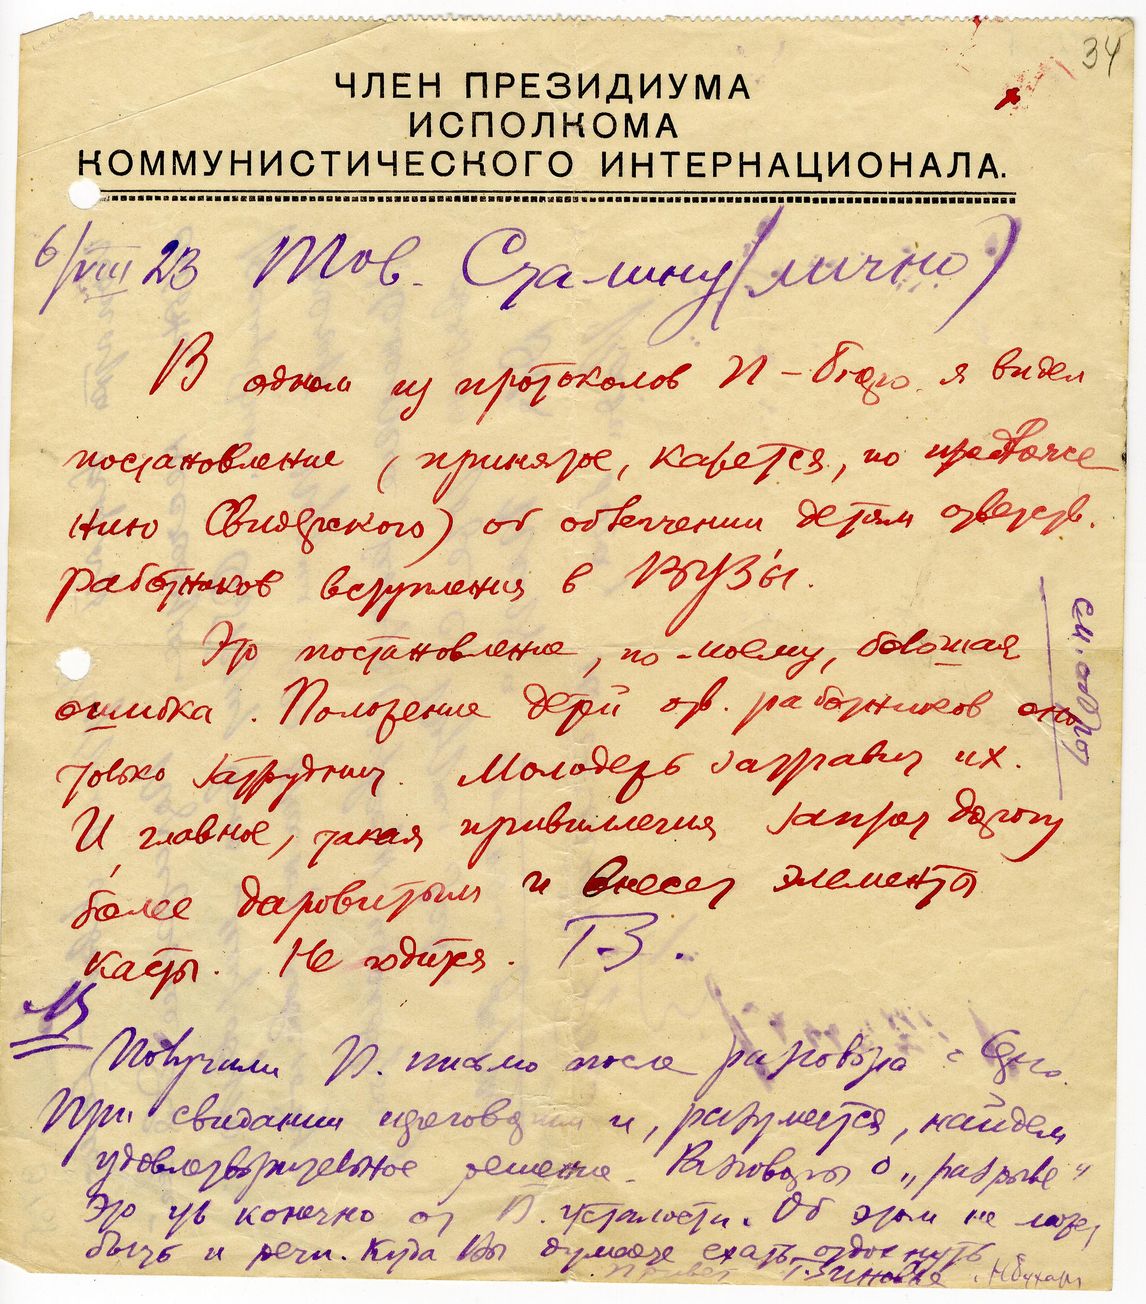 34
ЧЛЕН ПРЕЗИДИУМА
ИСПОЛКОМА
КОММУНИСТИЧЕСКОГО ИНТЕРНАЦИОНАЛА.
6/VIII 23 Тов. Сталину (лично)
В одном из протоколов П-бюро я видел
постановление (принятое, кажется, по предложе
нию Свидерского) об облегчении детям ответств.
работников вступления в ВУЗ'ы.
Это постановление, по-моему, большая
ошибка. Положение детей отв. работников оно
только затруднит. Молодежь затравит их.
И главное, такая привиллегия запрет дорогу
более даровитым и внесет элементы
касты. Не годится. Г.З.
см. оборот
NB
Получили В. письмо после разговора с Серго.
При свидании переговорим и, разумеется, найдем
удовлетворительное решение. Разговоры о „разрыве“
это уж конечно от В. усталости. Об этом не может
быть и речи. Куда Вы думаете ехать отдохнуть
Привет Г. Зиновьев. Н. Бухарин